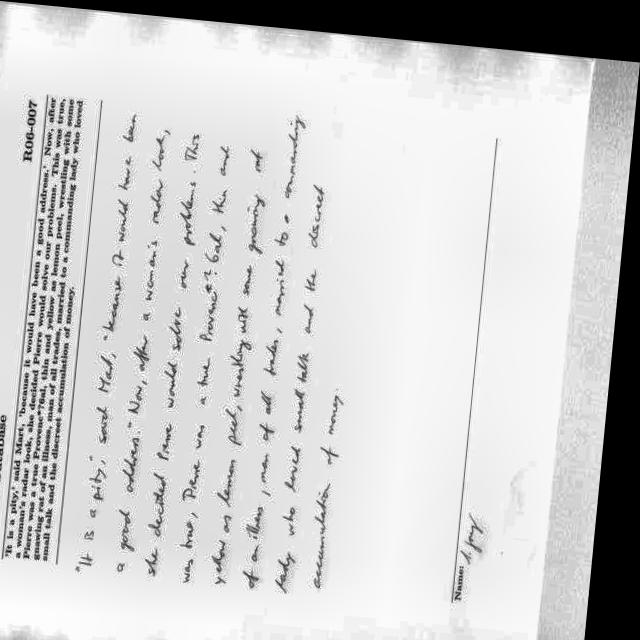 R06-007
'It is a pity,' said Mart, 'because it would have been a good address.' Now, after
a woman's rather look, she decided Pierre would solve our problems. This was true,
Pierre was a true Provençal, thin and yellow as lemon peel, wrestling with some
gnawing of an illness, man of all trades, married to a commanding lady who loved
small talk and the discreet accumulation of money.
"It is a pity," said Mart, "because it would have been
a good address." Now, after a woman's rather look,
she decided Pierre would solve our problems. This
was true, Pierre was a true Provençal, thin and
yellow as lemon peel, wrestling with some gnawing
of an illness, man of all trades, married to a commanding
lady who loved small talk and the discreet
accumulation of money.
Name: